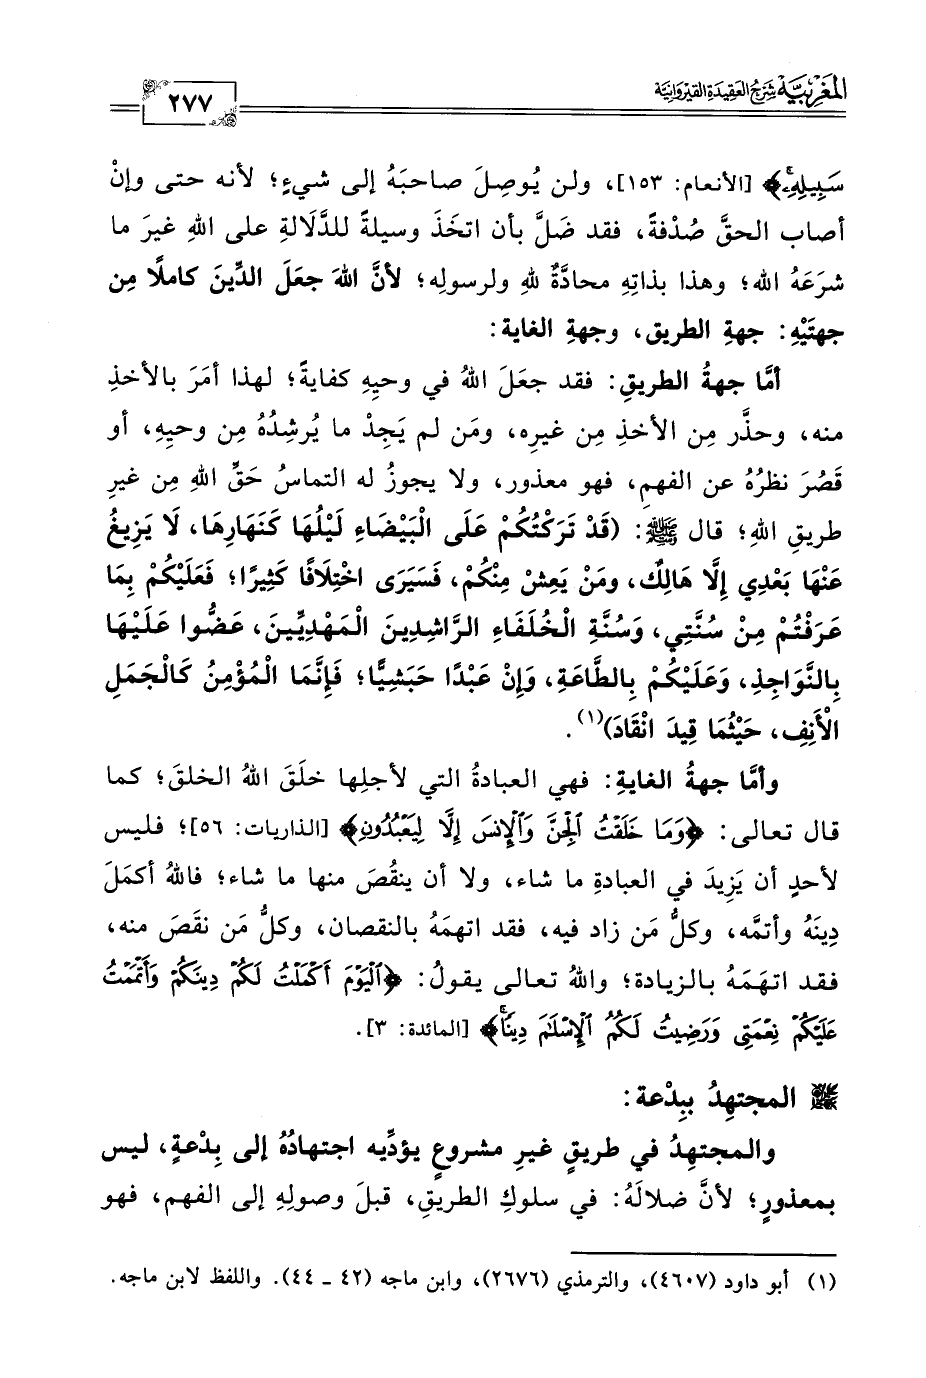 المَغْرِبيَّة شَرْحُ العَقِيدَةِ القَيْرَوَانِيَّة
٢٧٧
سَبِيلِهِۦۚ﴾ [الأنعام: ١٥٣]، ولن يُوصِلَ صاحبَهُ إلى شيءٍ؛ لأنه حتى وإنْ
أصاب الحقَّ صُدْفةً، فقد ضَلَّ بأن اتخَذَ وسيلةً للدَّلَالةِ على اللهِ غيرَ ما
شرَعَهُ الله؛ وهذا بذاتِهِ محادَّةٌ للهِ ولرسولِه؛ لأنَّ اللهَ جعَلَ الدِّينَ كاملًا مِن
جهتَيْهِ: جهةِ الطريق، وجهةِ الغاية:
أمَّا جهةُ الطريقِ: فقد جعَلَ اللهُ في وحيِهِ كفايةً؛ لهذا أمَرَ بالأخذِ
منه، وحذَّر مِن الأخذِ مِن غيرِه، ومَن لم يَجِدْ ما يُرشِدُهُ مِن وحيِهِ، أو
قَصُرَ نظرُهُ عن الفهمِ، فهو معذور، ولا يجوزُ له التماسُ حَقِّ اللهِ مِن غيرِ
طريقِ اللهِ؛ قال ﷺ: (قَدْ تَرَكْتُكُمْ عَلَى الْبَيْضَاءِ لَيْلُهَا كَنَهَارِهَا، لَا يَزِيغُ
عَنْهَا بَعْدِي إِلَّا هَالِكٌ، ومَنْ يَعِشْ مِنْكُمْ، فَسَيَرَى اخْتِلَافًا كَثِيرًا؛ فَعَلَيْكُمْ بِمَا
عَرَفْتُمْ مِنْ سُنَّتِي، وَسُنَّةِ الْخُلَفَاءِ الرَّاشِدِينَ الْمَهْدِيِّينَ، عَضُّوا عَلَيْهَا
بِالنَّوَاجِذِ، وَعَلَيْكُمْ بِالطَّاعَةِ، وَإِنْ عَبْدًا حَبَشِيًّا؛ فَإِنَّمَا الْمُؤْمِنُ كَالْجَمَلِ
الْأَنِفِ، حَيْثُمَا قِيدَ انْقَادَ)(١).
وأمَّا جهةُ الغايةِ: فهي العبادةُ التي لأجلِها خلَقَ اللهُ الخلقَ؛ كما
قال تعالى: ﴿وَمَا خَلَقْتُ ٱلْجِنَّ وَٱلْإِنسَ إِلَّا لِيَعْبُدُونِ﴾ [الذاريات: ٥٦]؛ فليس
لأحدٍ أن يَزِيدَ في العبادةِ ما شاء، ولا أن ينقُصَ منها ما شاء؛ فاللهُ أكمَلَ
دِينَهُ وأتمَّه، وكلُّ مَن زاد فيه، فقد اتهمَهُ بالنقصان، وكلُّ مَن نقَصَ منه،
فقد اتهَمَهُ بالزيادة؛ واللهُ تعالى يقولُ: ﴿ٱلْيَوْمَ أَكْمَلْتُ لَكُمْ دِينَكُمْ وَأَتْمَمْتُ
عَلَيْكُمْ نِعْمَتِى وَرَضِيتُ لَكُمُ ٱلْإِسْلَـٰمَ دِينًاۚ﴾ [المائدة: ٣].
المجتهِدُ ببِدْعة:
والمجتهِدُ في طريقٍ غيرِ مشروعٍ يؤدِّيه اجتهادُهُ إلى بِدْعةٍ، ليس
بمعذورٍ؛ لأنَّ ضلالَهُ: في سلوكِ الطريقِ، قبلَ وصولِهِ إلى الفهمِ، فهو
(١) أبو داود (٤٦٠٧)، والترمذي (٢٦٧٦)، وابن ماجه (٤٢ ـ ٤٤). واللفظ لابن ماجه.